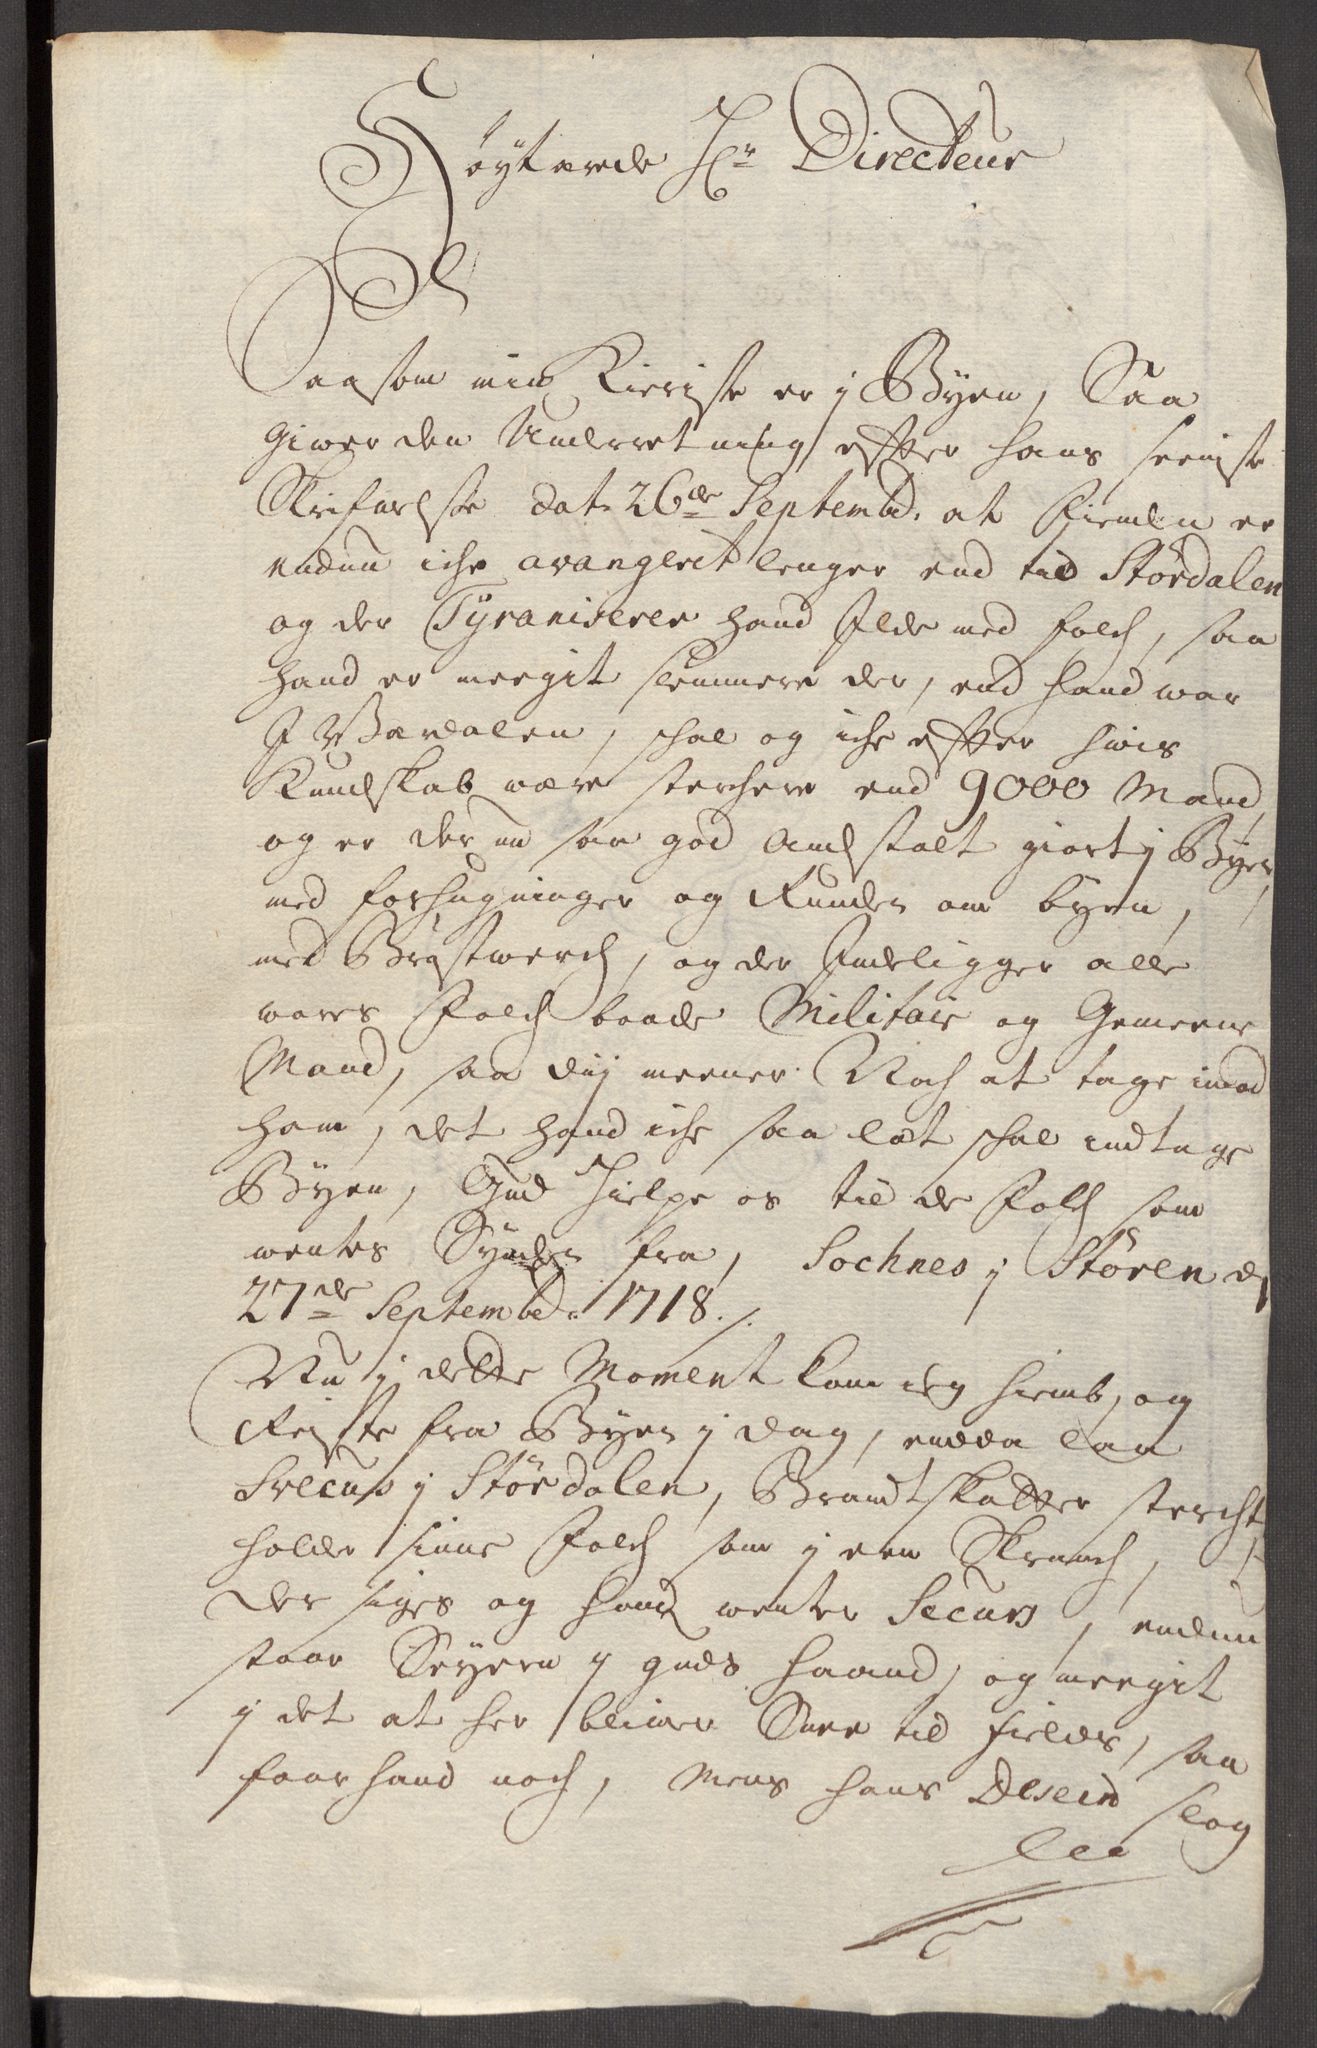 Höÿtærede Hr Directeur
Saasom min Kieriste er j Byen, Saa
giwer den Underretning efter hans seeniste
Skrifvelse dat. 26de Septembr. at Fienden er
endnu iche avangeret lenger end til Stördalen
og der Tyraniserer hand Ilde med folch, saa
hand er meegit slemmere der, end hand war
I Wærdalen, schal og iche efter hwis
Kundskab være sterchere end 9000 Mand,
og er der nu saa god Andstalt giort j Byen,
med forhugninger og Runden om byen,
med Bröstwerch, og der Indeligger alle
vores Folch baade Militair og Gemeene
Mand, saa dij meener Noch at tage imod
ham, det hand iche saa læt schal indtage
Byen, Gud Hielpe os til de Folch som
wentes Synden fra, Sochnes j Stören d
27de Septembr: 1718 ./.
Nu j dette Moment kom ieg hiemb, og
Reiste fra Byen j dag, endda laa
Svecus j Stördalen, Brandtskatter stercht,
holder sinne Folch som j een Skranch,
der siges og hand wenter Securs, endnu
staar Seyern j guds haand, og meegit
j det at her bliwer Snee til fields, saa
faar hand noch, Mens hans Desein slog